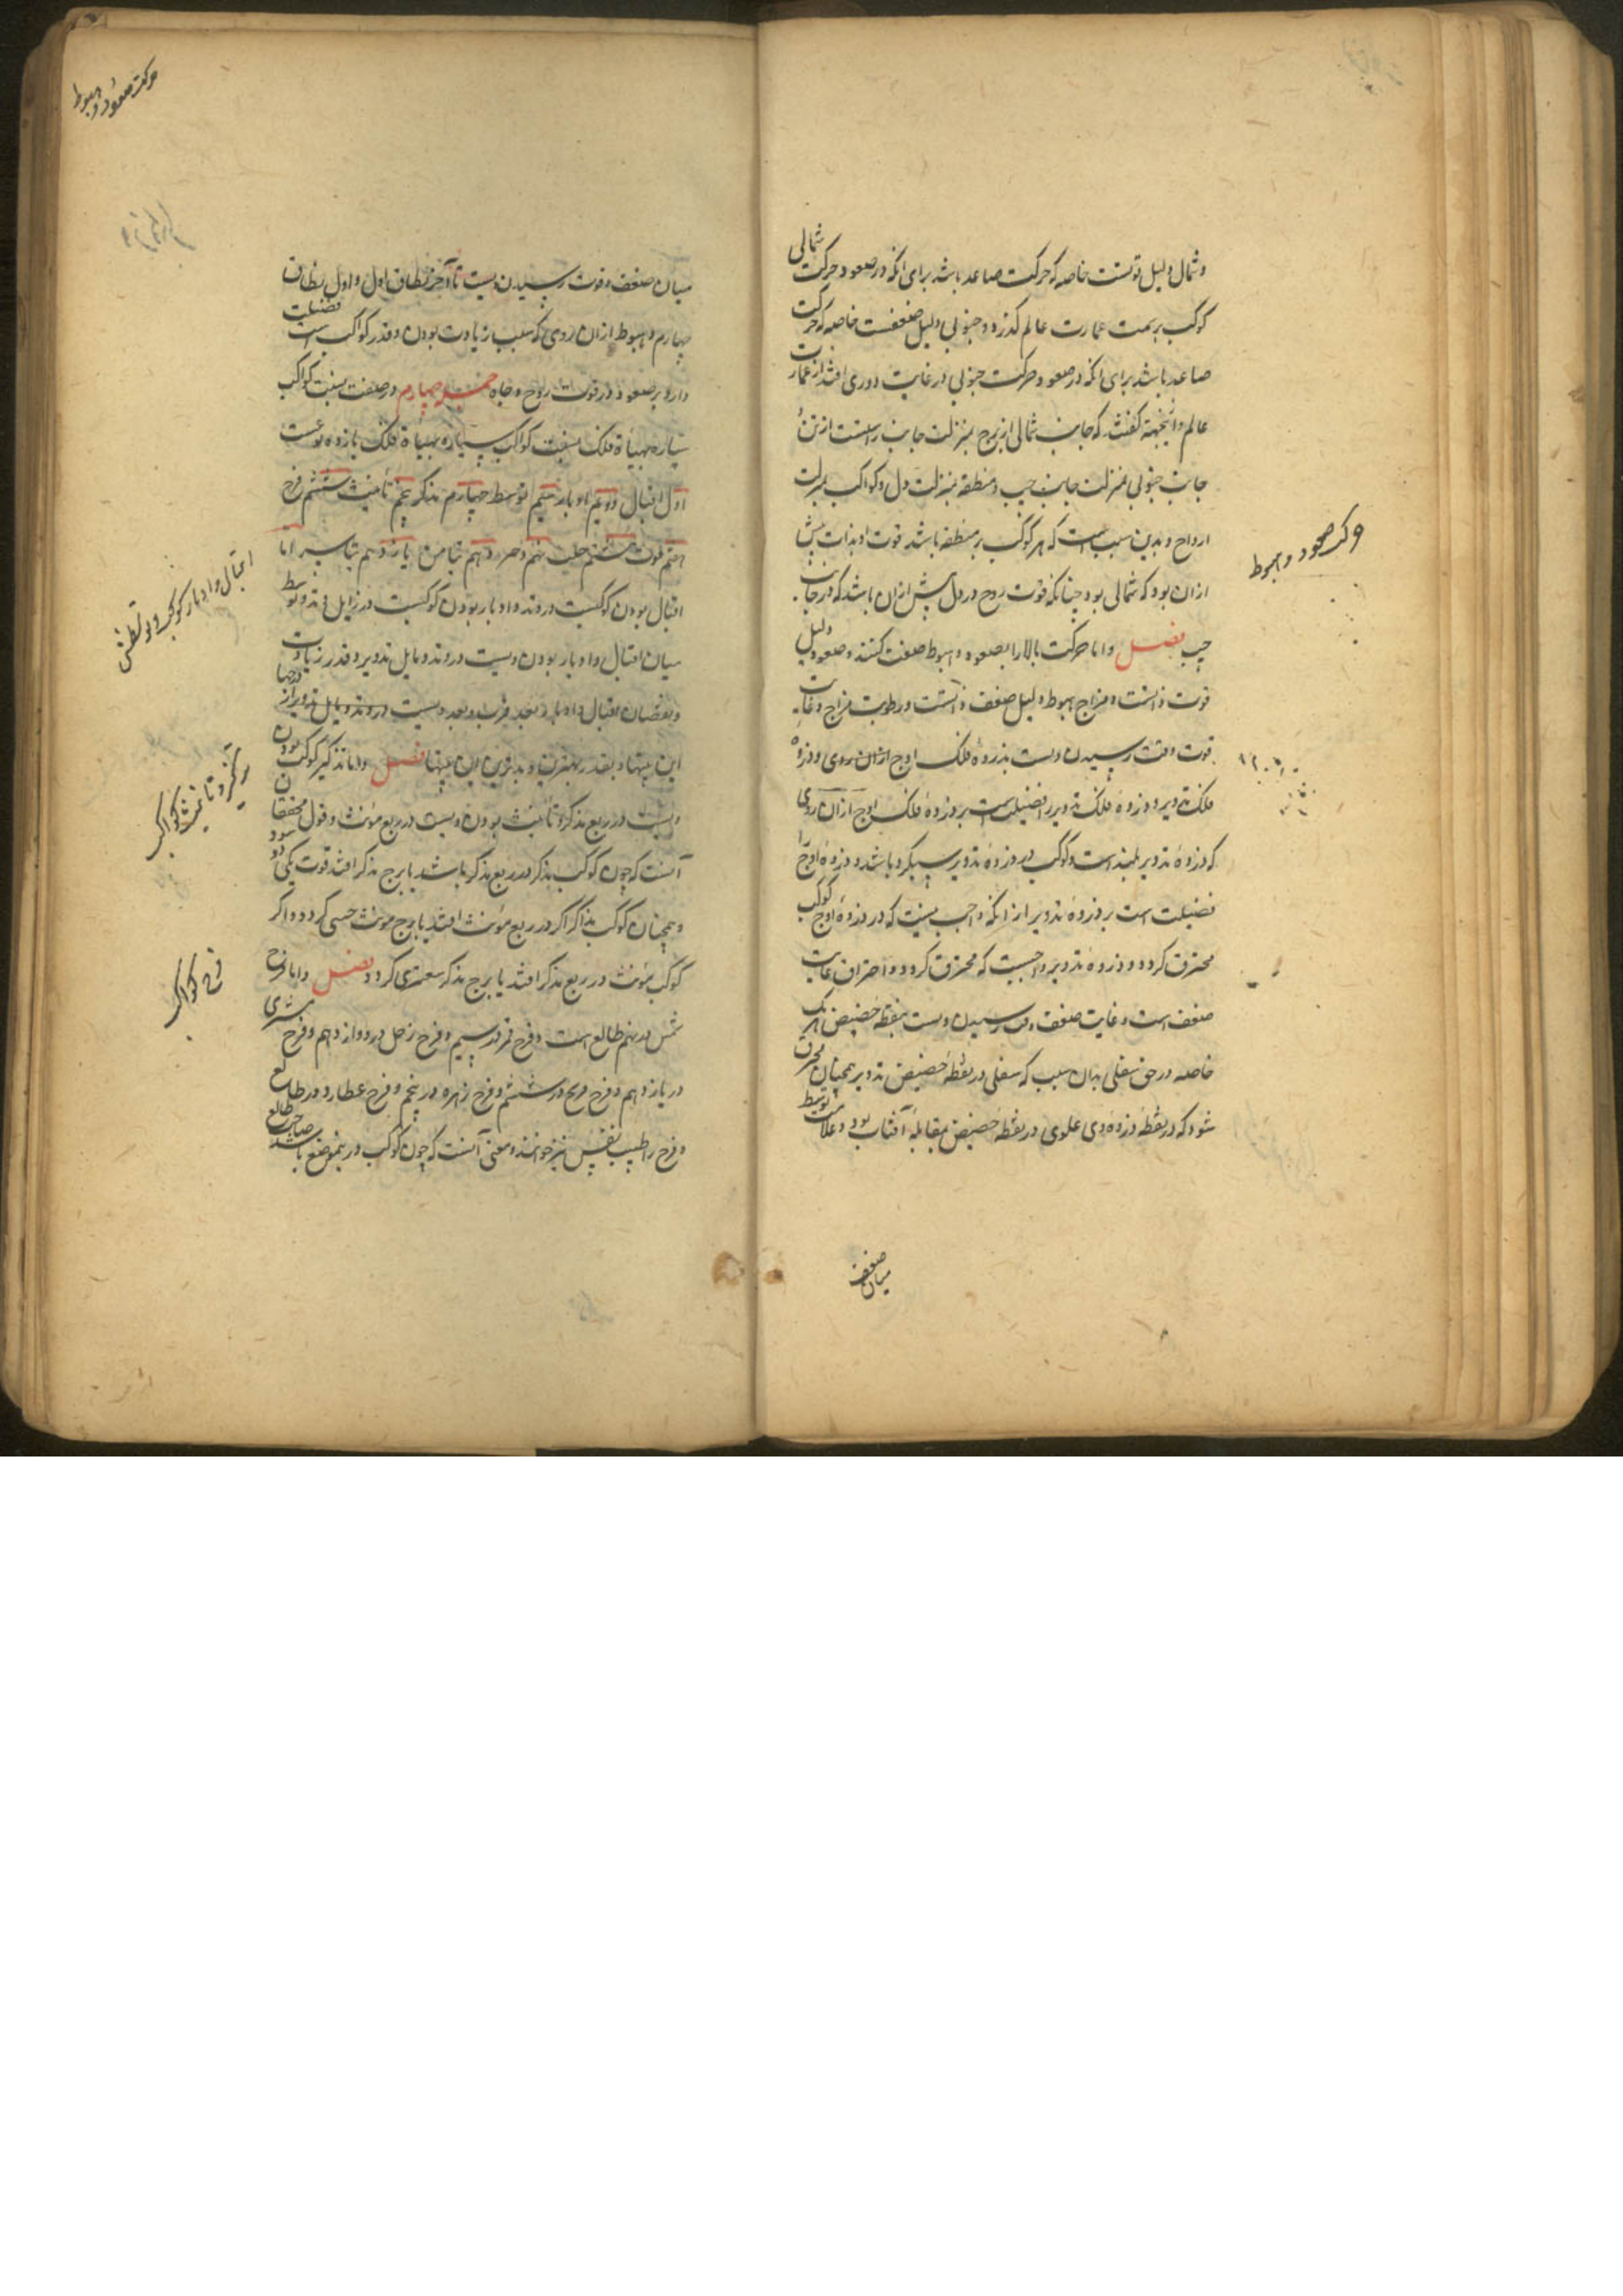 وشمال دلیل قوتست خاصه که حرکت صاعد باشد برای انکه در صعود و حرکت شمالی
کوکب بر سمت عمارت عالم کذرد و جنوبی دلیل ضعفست خاصه که حرکت
صاعد باشد برای انکه در صعود و حرکت جنوبی در غایت دوری افتد از عمارت
عالم و انجهة کفتند که جانب شمالی از برج بمنزلت جانب راستست از تن و
جانب جنوبی بمنزلت جانب چپ و منطقه بمنزلت دل و کواکب بمنزلت
ارواح و بدین سبب است که هر کوکب بر منطقه باشد قوت او بذات بیش
ازان بود که شمالی بود چنانکه قوت روح در دل بیش ازان باشد که در جانب
چپ فصل و اما حرکت بالا را بصعود و هبوط صفت کنند و صعود دلیل
قوت و مزاج هبوط دلیل ضعف و رطوبت مزاج و غایت
قوت وقت رسیدن ویست بذروهٔ فلک اوج ازان روی و ذروه
فلک تدویر و ذروه فلک تدویر را فضیلت است بر ذروهٔ فلک اوج ازان روی
که ذروهٔ تدویر بلند است و کوکب در ذروهٔ تدویر سبکرو باشد و ذروهٔ اوج را
فضیلت است بر ذروهٔ تدویر از انکه واجب نیست که در ذروهٔ اوج کوکب
محترق کردد و در ذروه تدویر واجبست که محترق کردد و احتراق غایت
ضعف است و غایت ضعف وقت رسیدن ویست بنقطه حضیض هر یک
خاصه در حق سفلی بدان سبب که سفلی در نقطهٔ حضیض تدویر همچنان محترق
شود که در نقطهٔ ذروه و علوی در نقطهٔ حضیض بمقابلهٔ آفتاب بود و علامت توسط
میان ضعف
حرکت صعود و هبوط
حرکت صعود و هبوط
میان ضعف و قوت رسیدن ویست تا آخر نطاق اول و اول نطاق
چهارم و هبوط ازان روی که سبب زیادت بودن و قدر کواکب است فضیلت
دارد بر صعود و در قوت روح و جاه چهارم در صفت نسبت کواکب
سیاره بهیأة فلک نسبت کواکب سیاره بهیأة فلک یازده نوعست
اول اقبال دویم ادبار سیم توسط چهارم تذکیر پنجم تأنیث ششم فرح
هفتم قوت هشتم حلب نهم حیز دهم تیامن یازدهم تیاسر اما
اقبال بودن کوکبست در وتد و ادبار بودن کوکبست در زایل وتد و توسط
میان اقبال و ادبار بودن ویست در وتد و مایل تدویر و قدر زیادت
و نقصان اقبال و ادبار بحد قرب و بعد ویست در وتد و مایل تدویر از درجها
این بیتها و بقدر بهترین و بدترین این بیتها فصل و اما تذکیر کوکب بودن
ویست در ربع مذکر و تأنیث بودن ویست در ربع مؤنث و قول محققان
آنست که چون کوکب مذکر در ربع مذکر باشد یا برج مذکر افتد قوت یکی دو شود
و همچنان کوکب مذکر اکر در ربع مؤنث افتد یا برج مونث خنثی کردد و اکر
کوکب مؤنث در ربع مذکر افتد یا برج مذکر سعتری کردد فصل و اما فرح
شمس در نهم طالع است و فرح قمر در سیم و فرح زحل در دوازدهم و فرح مشتری
در یازدهم و فرح مریخ در ششم و فرح زهره در پنجم و فرح عطارد در طالع
و فرح را طیب نفس نیز خوانند و معنی آنست که چون کوکب درین موضع باشد صاحب طالع
اقبال و ادبار کوکب و توسطش
تذکیر و تأنیث کواکب
فرح کواکب